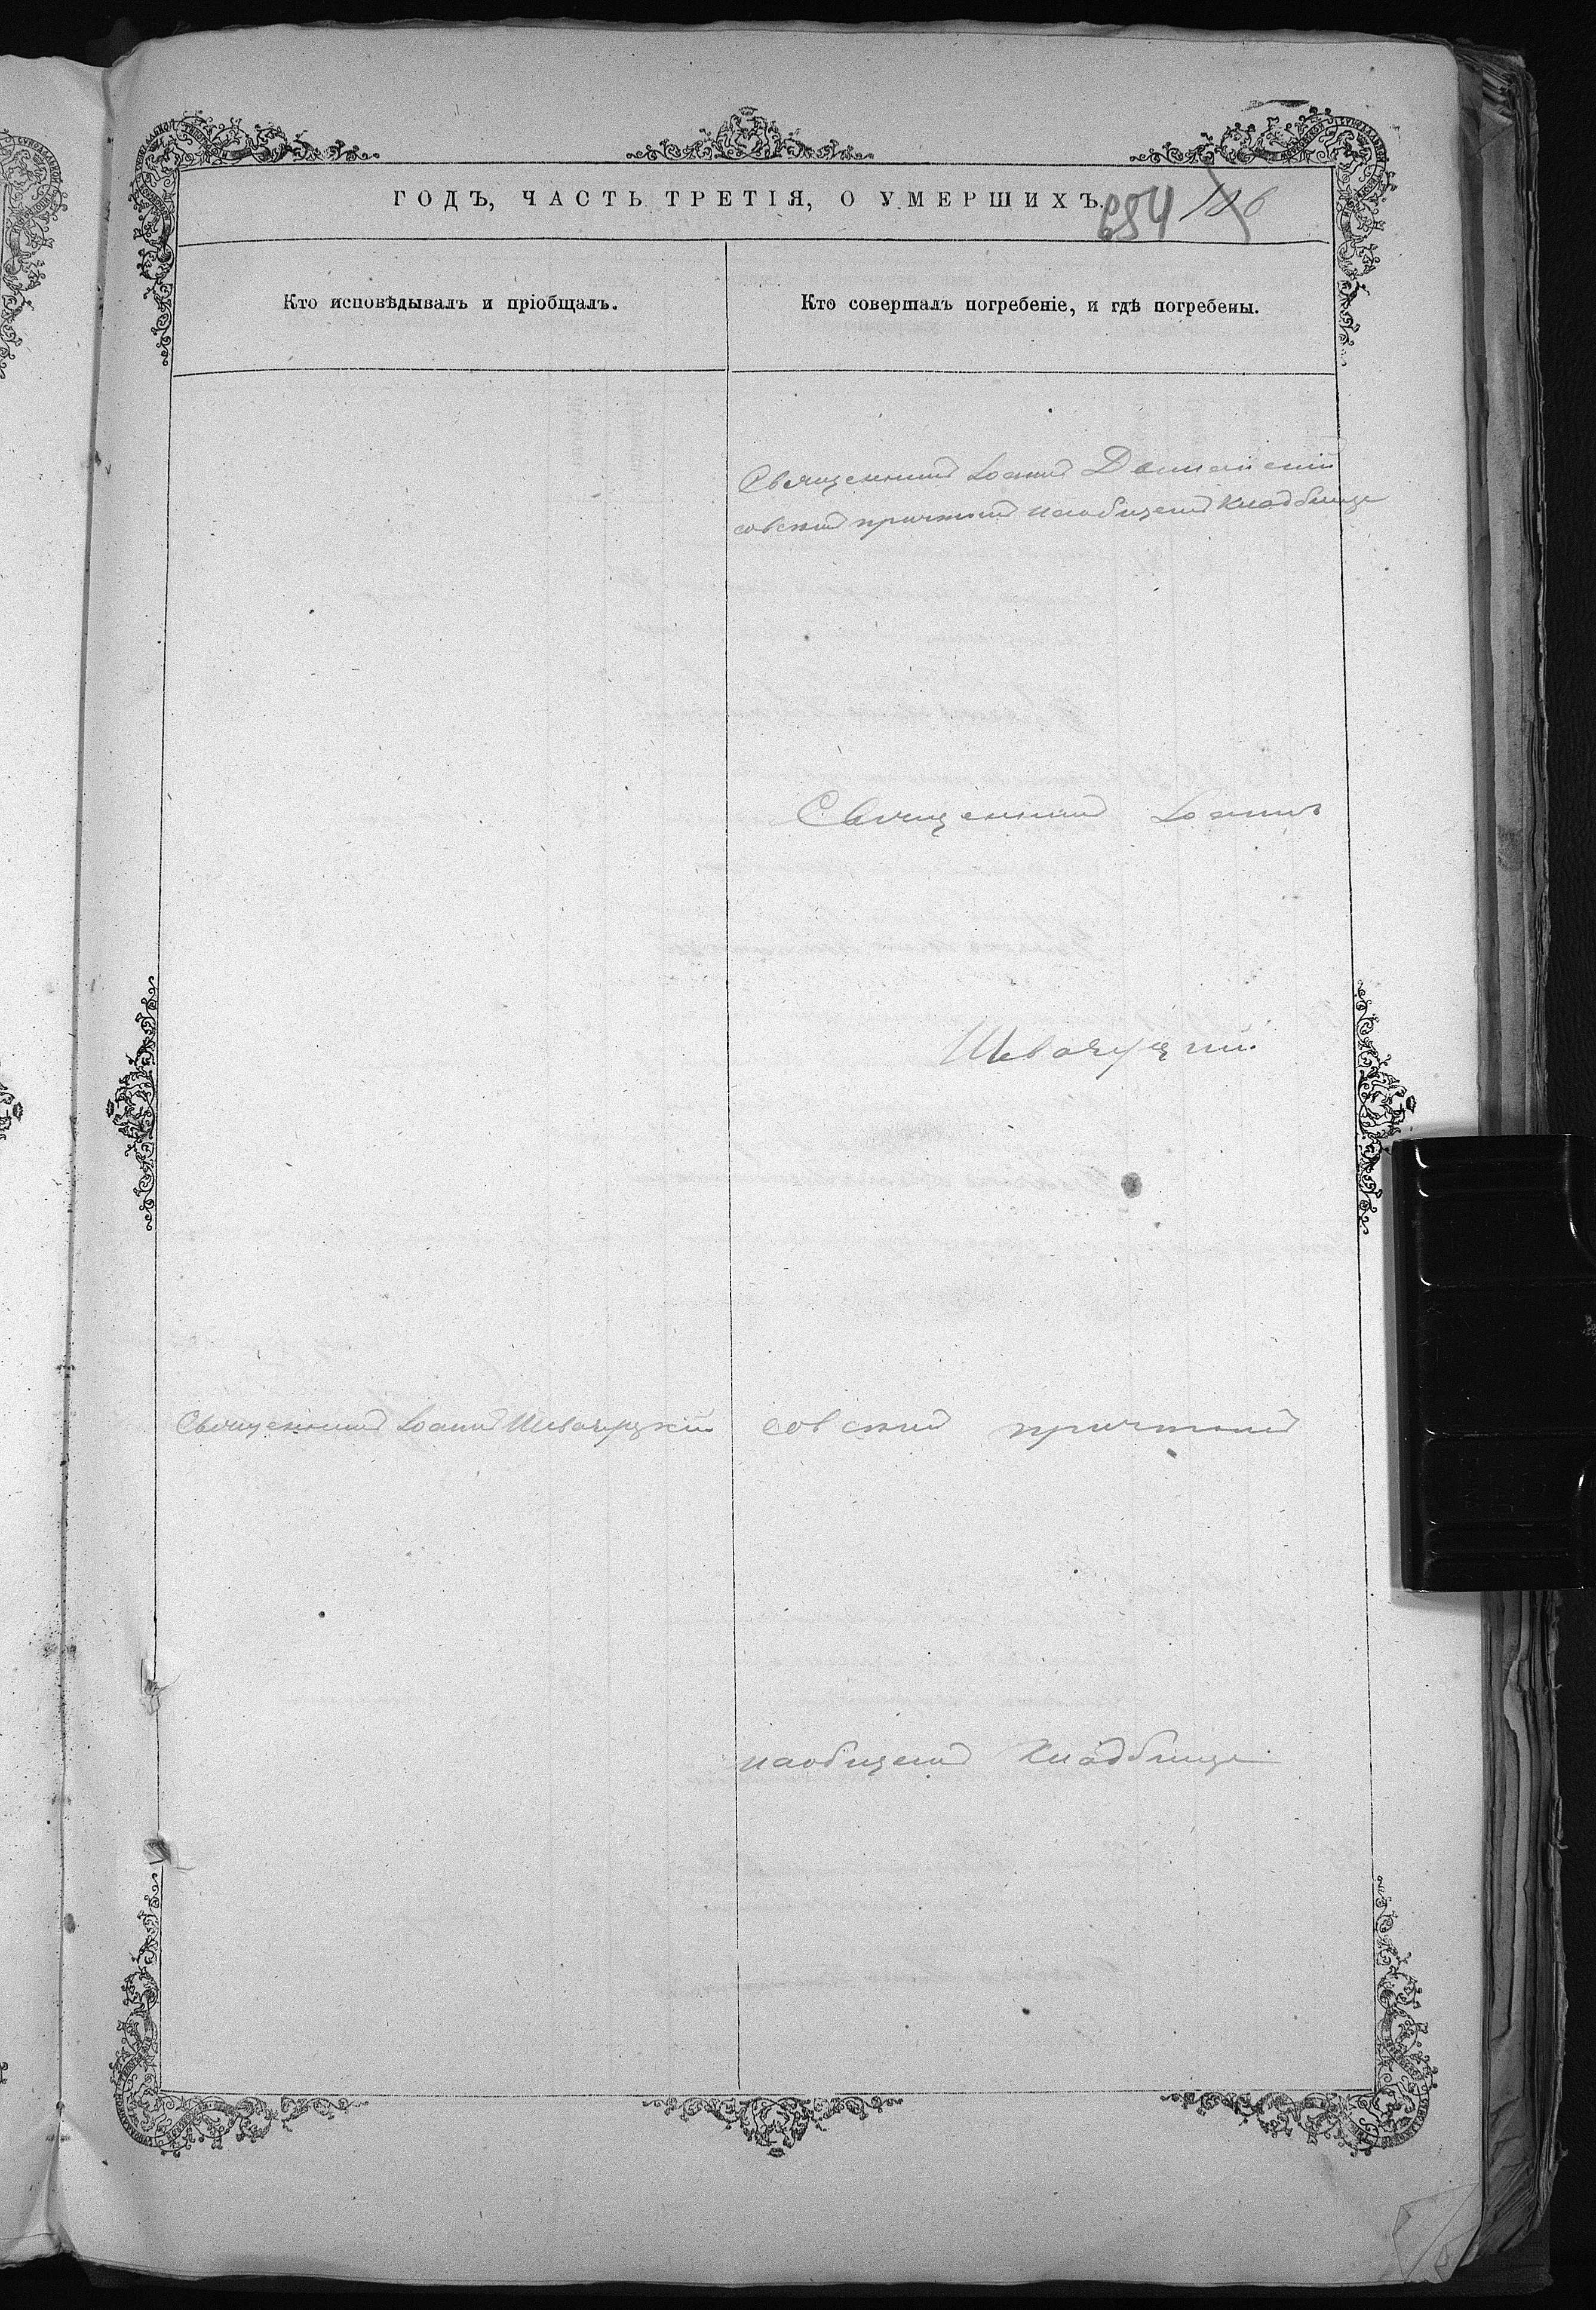 ГОДЪ, ЧАСТЬ ТРЕТІЯ, О УМЕРШИХЪ.
694 186
Кто исповѣдывалъ и пріобщалъ.
Кто совершалъ погребеніе, и гдѣ погребены.
Священникъ Іоаннъ
совсѣмъ причтомъ наобщемъ Кладбище
Священникъ Іоаннъ
Шевалуцкій
Священникъ Іоаннъ Шевалуцкій
совсѣмъ причтомъ
наобщемъ Кладбище